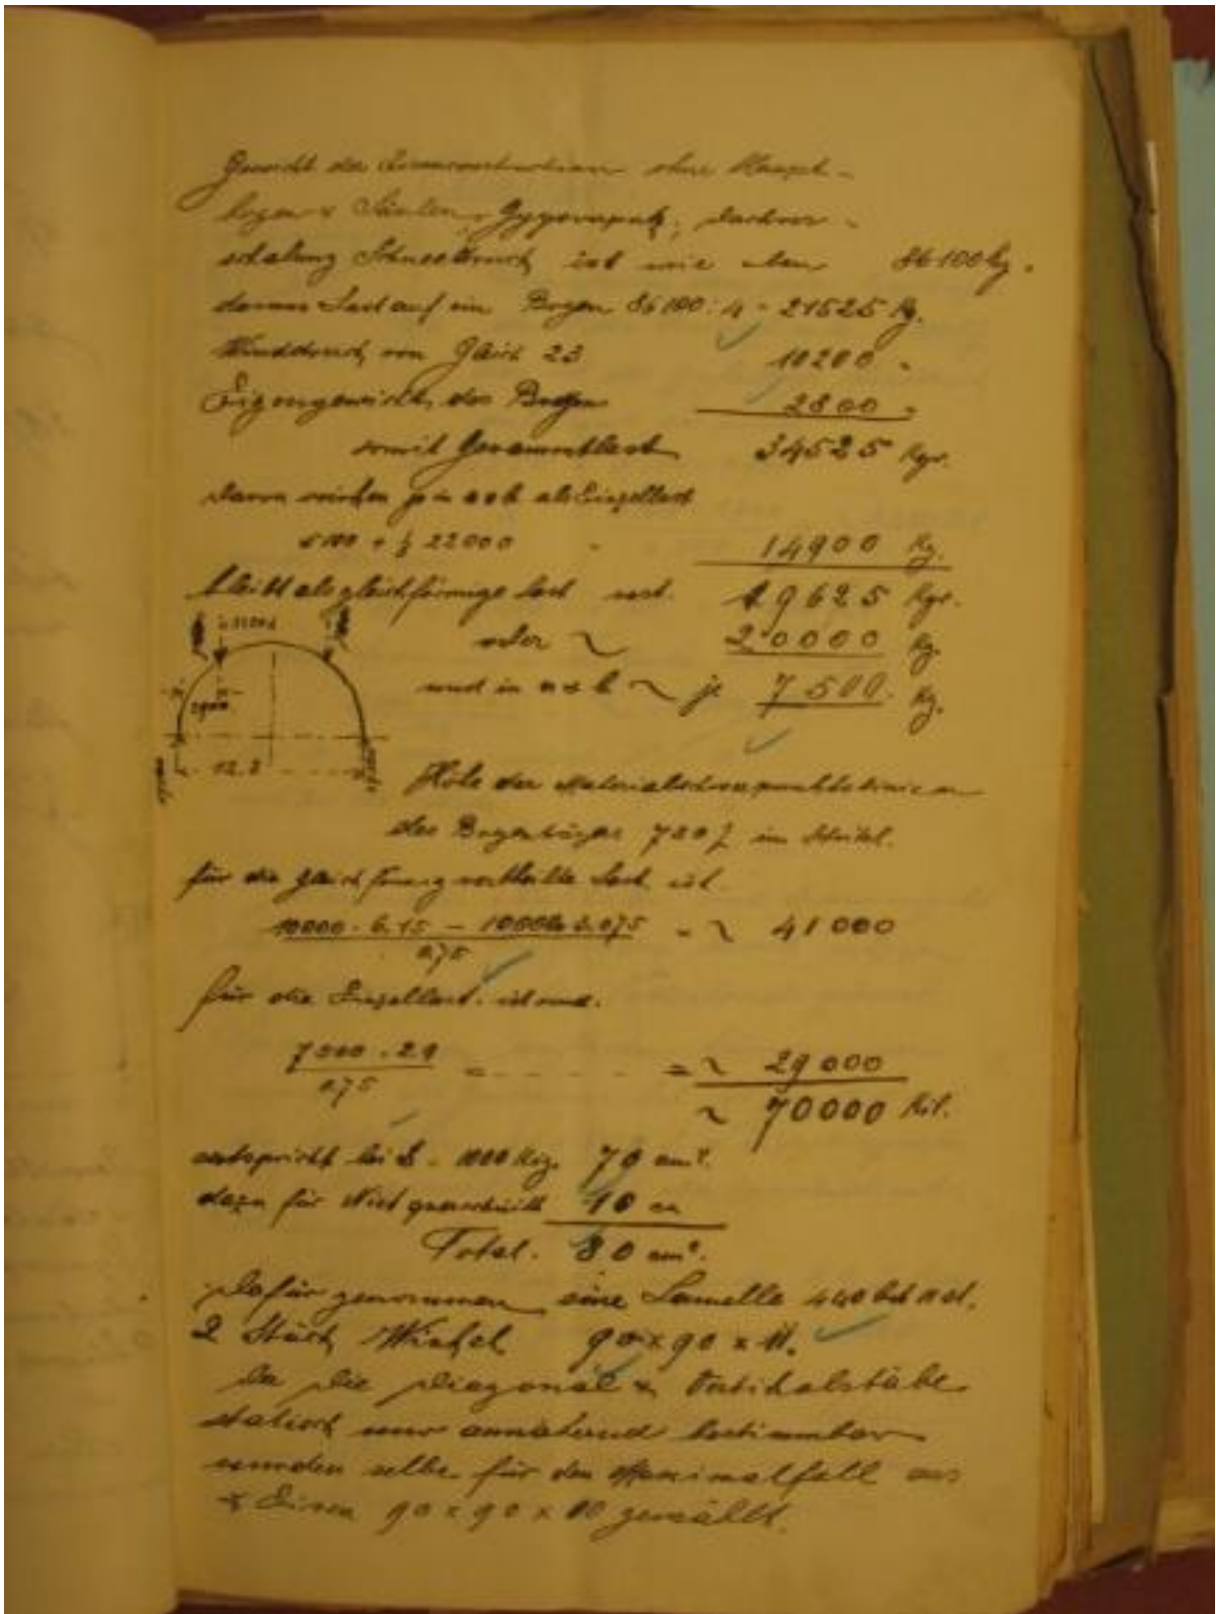 Gewicht der Eisenconstruction ohne Haupt-
bogen & Säulen, Gypsverputz, Dachver-
schalung Schneedruck ist wie oben 86100 kg.
daraus Last auf ein Bogen 86100 : 4 = 21525 Kg.
Winddruck von Gleich 23 10200 "
Eigengewicht des Bogens 2800 "
somit Gesammtlast 34525 Kgr.
Davon wirken je in a & b als Einzellast
22000 14900 Kg.
bleibt als gleichförmige Last rest. 19625 Kgr.
oder ~ 20000 Kg.
und in a & b ~ je 7500. Kg.
12.3
Höhe der
des im Scheitel.
für die gleichförmig vertheilte Last ist
10000 · 6.15 – 10000 · 3.075 = ~ 41000
0,75
für die Einzellast
= - - - - = ~ 29000
0,75
~ 70000 Kil.
entspricht bei 1000 Kg. 70 cm².
dazu für Nietquerschnitt 10 cm
Total. 80 cm².
Dafür genommen eine Lamelle 440
2 Stück Winkel 90 x 90 x 11.
Da die Diagonal & Vertikalstäbe
statisch nur annähernd bestimmbar
wurden selbe für den Maximalfall aus
Eisen 90 x 90 x 10 gewählt.